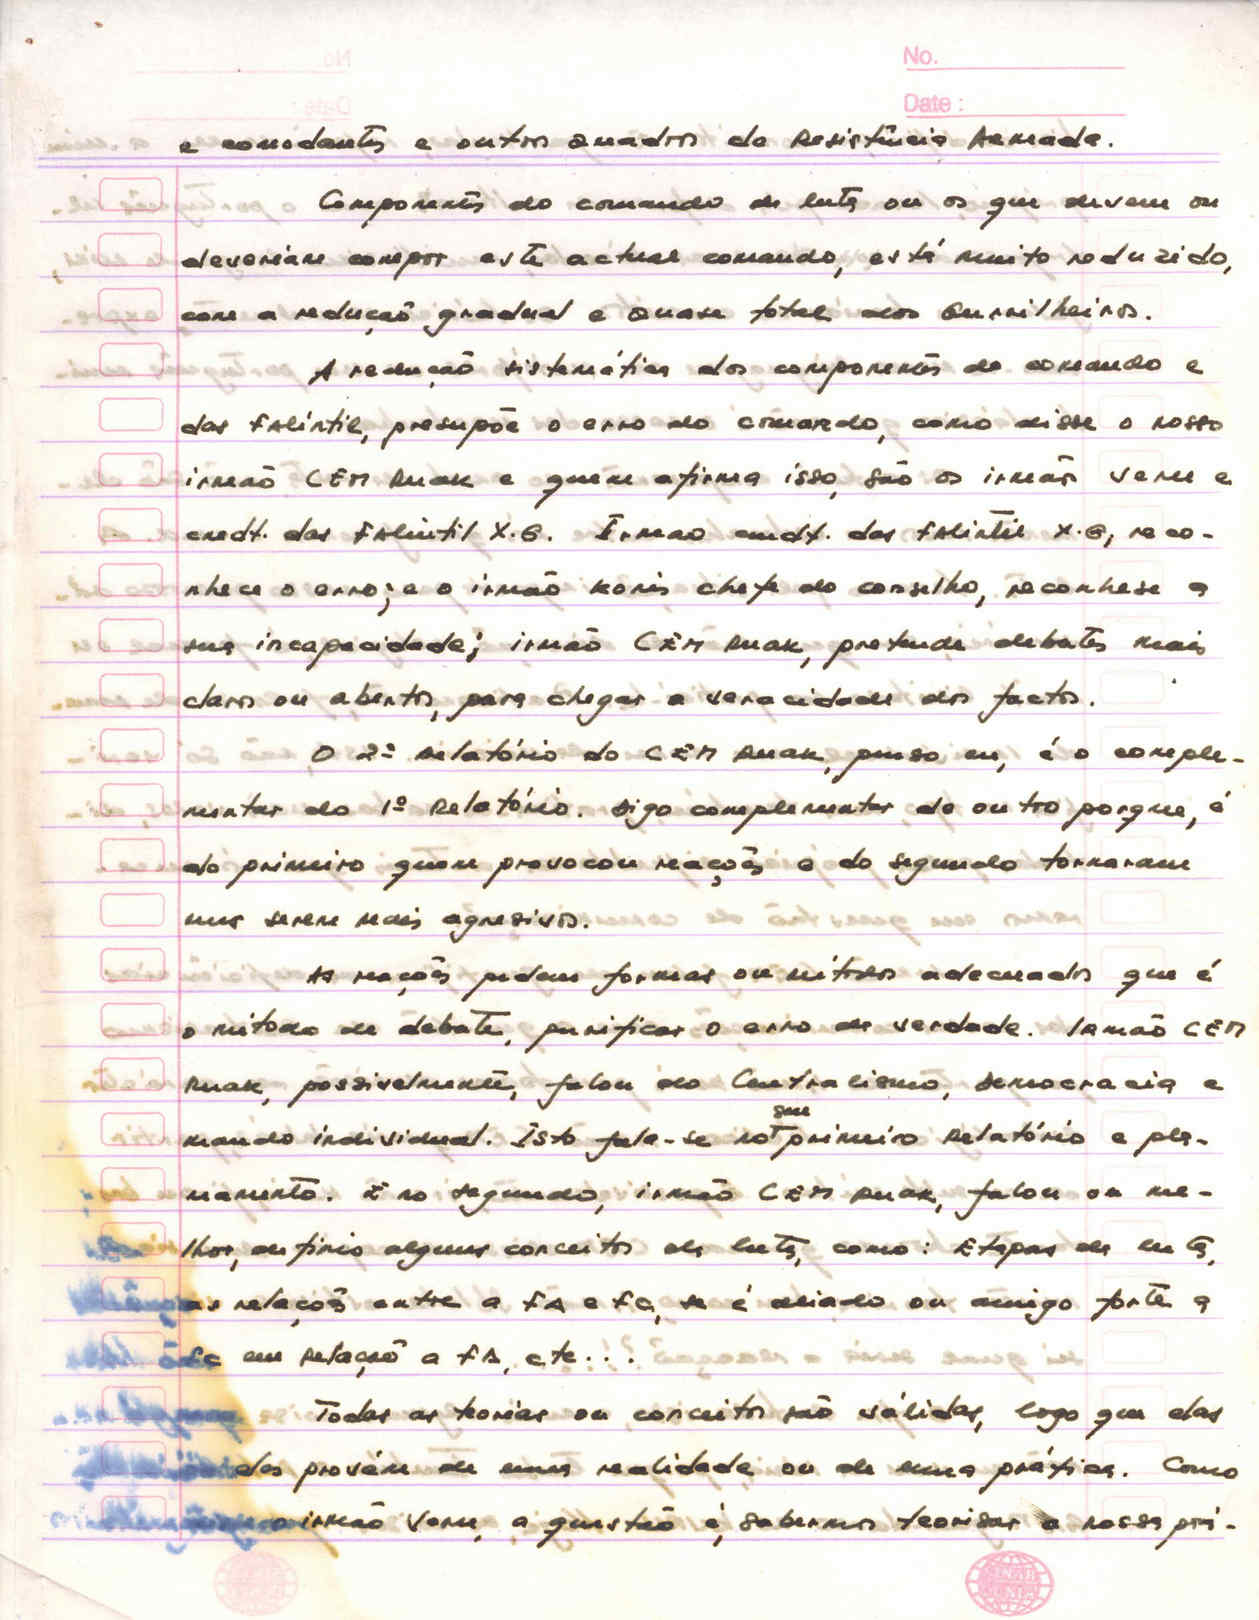 No.
Date :
e comodantes e outros Quadros da Resistência Armada.
Componentes do comando de luta ou os que devem ou
deveriam compor este actual comando, está muito reduzido,
com a redução gradual e quase total dos Guerrilheiros.
A redução sistemática dos componentes do comando e
das Falintil, presupõe o erro do comando, como disse o nosso
irmão CEM Ruak e quem afirma isso, são os irmãos Veru e
cmdt. das Falintil X.G. Irmao cmdt. das Falintil X.G, reco-
nhece o erro; e o irmão Konis chefe do conselho, reconhese a
sua incapacidade; irmão CEM Ruak, pretende debates mais
claros ou abertos, para chegar a veracidade dos factos.
O 2º Relatório do CEM Ruak, penso eu, é o comple-
mentar do 1º Relatório. Digo complementar do outro porque, é
do primeiro quem provocou reações e do segundo tornaram
mus serem mais agresivos.
As reações pedem formas ou métodos adecuados que é
o método de debate, purificar o erro de verdade. Irmão CEM
Ruak, possivelmente, falou do Centralismo, Democracia e
mando individual. Isto fala-se no seu primeiro Relatório e pla-
niamento. E no segundo, irmão CEM Ruak, falou ou me-
lhor, definio alguns conceitos de luta, como: Etapas de luta,
as relações entre a FA e FC, se é aliado ou amigo forte a
FC em relação a FA, etc...
Todas as teorias ou conceitos são válidas, logo que elas
provém de uma realidade ou de uma prática. Como
o irmão Veru, a questão é, sabermos teorisar a nossa prá-